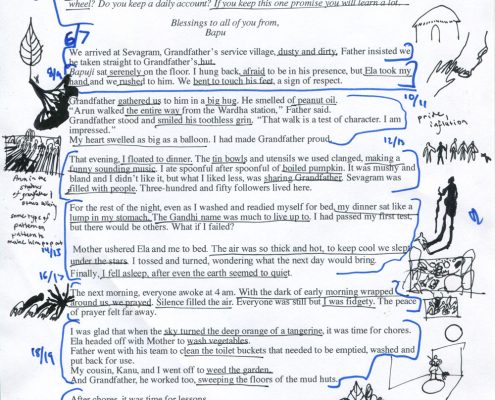 wheel? Do you keep a daily account? If you keep this one promise you will learn a lot.
Blessings to all of you from,
Bapu
6/7
We arrived at Sevagram, Grandfather's service village, dusty and dirty. Father insisted we
be taken straight to Grandfather's hut.
8/9
Bapuji sat serenely on the floor. I hung back, afraid to be in his presence, but Ela took my
hand and we rushed to him. We bent to touch his feet, a sign of respect.
10/11
Grandfather gathered us to him in a big hug. He smelled of peanut oil.
"Arun walked the entire way from the Wardha station," Father said.
Grandfather stood and smiled his toothless grin. "That walk is a test of character. I am
impressed."
My heart swelled as big as a balloon. I had made Grandfather proud.
pride
inflation
12/13
That evening, I floated to dinner. The tin bowls and utensils we used clanged, making a
funny sounding music. I ate spoonful after spoonful of boiled pumpkin. It was mushy and
bland and I didn't like it, but what I liked less, was sharing Grandfather. Sevagram was
filled with people. Three-hundred and fifty followers lived here.
Arun in the
shadows
of grandfather &
some type of
pattern on
patterns to
make him pop out
14/15
For the rest of the night, even as I washed and readied myself for bed, my dinner sat like a
lump in my stomach. The Gandhi name was much to live up to. I had passed my first test,
but there would be others. What if I failed?
Mother ushered Ela and me to bed. The air was so thick and hot, to keep cool we slept
under the stars. I tossed and turned, wondering what the next day would bring.
Finally, I fell asleep, after even the earth seemed to quiet.
16/17
The next morning, everyone awoke at 4 am. With the dark of early morning wrapped
around us, we prayed. Silence filled the air. Everyone was still but I was fidgety. The peace
of prayer felt far away.
18/19
I was glad that when the sky turned the deep orange of a tangerine, it was time for chores.
Ela headed off with Mother to wash vegetables.
Father went with his team to clean the toilet buckets that needed to be emptied, washed and
put back for use.
My cousin, Kanu, and I went off to weed the garden.
And Grandfather, he worked too, sweeping the floors of the mud huts.
After chores, it was time for lessons.